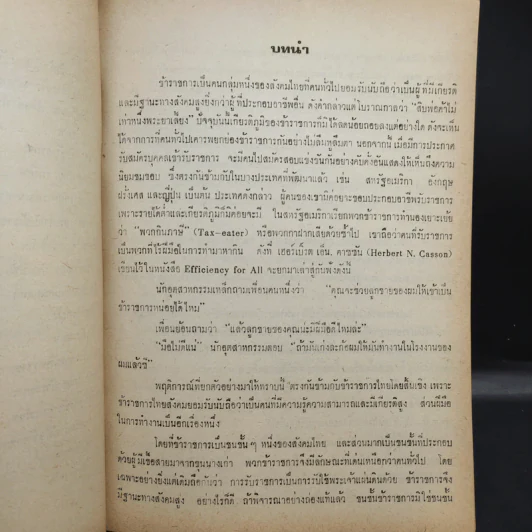 บทนำ
ข้าราชการเป็นคนกลุ่มหนึ่งของสังคมไทยที่คนทั่วไปยอมรับนับถือว่าเป็นผู้ที่มีเกียรติ
และมีฐานะทางสังคมสูงยิ่งกว่าผู้ที่ประกอบอาชีพอื่น ดังคำกล่าวแต่โบราณกาลว่า "สิบพ่อค้าไม่
เท่าหนึ่งพระยาเลี้ยง" ปัจจุบันนี้เกียรติภูมิของข้าราชการก็มิได้ลดน้อยถอยลงแต่อย่างใด ดังจะเห็น
ได้จากการที่คนทั่วไปเคารพยกย่องข้าราชการกันอย่างไม่ลืมหูลืมตา นอกจากนี้ เมื่อมีการประกาศ
รับสมัครบุคคลเข้ารับราชการ จะมีคนไปสมัครสอบแข่งขันกันอย่างคับคั่งอันแสดงให้เห็นถึงความ
นิยมชมชอบ ซึ่งตรงกันข้ามกับในบางประเทศที่พัฒนาแล้ว เช่น สหรัฐอเมริกา อังกฤษ
ฝรั่งเศส และญี่ปุ่น เป็นต้น ประเทศดังกล่าว ผู้คนของเขามิค่อยจะชอบประกอบอาชีพรับราชการ
เพราะรายได้ต่ำและเกียรติภูมิก็มิค่อยจะมี ในสหรัฐอเมริกาเรียกพวกข้าราชการทำนองเยาะเย้ย
ว่า "พวกกินภาษี" (Tax-eater) หรือพวกกาฝากเสียด้วยซ้ำไป เขาถือว่าคนที่รับราชการ
เป็นพวกที่ไร้ฝีมือในการทำมาหากิน ดังที่ เฮอร์เบิร์ต เอ็น. คาซซัน (Herbert N. Casson)
เขียนไว้ในหนังสือ Efficiency for All จะยกมาเล่าสู่กันฟังดังนี้
นักอุตสาหกรรมเหล็กถามเพื่อนคนหนึ่งว่า "คุณจะช่วยลูกชายของผมให้เข้าเป็น
ข้าราชการหน่อยได้ไหม"
เพื่อนย้อนถามว่า "แล้วลูกชายของคุณน่ะมีฝีมือดีไหมล่ะ"
"มือไม่ดีแน่" นักอุตสาหกรรมตอบ "ถ้ามันเก่งละก้อผมให้มันทำงานในโรงงานของ
ผมแล้วซี"
พฤติการณ์ที่ยกตัวอย่างมาให้ทราบนี้ ตรงกันข้ามกับข้าราชการไทยโดยสิ้นเชิง เพราะ
ข้าราชการไทยสังคมยอมรับนับถือว่าเป็นคนที่มีความรู้ความสามารถและมีเกียรติสูง ส่วนฝีมือ
ในการทำงานเป็นอีกเรื่องหนึ่ง
โดยที่ข้าราชการเป็นชนชั้น ๆ หนึ่งของสังคมไทย และส่วนมากเป็นชนชั้นที่ประกอบ
ด้วยผู้มีเชื้อสายมาจากขุนนางเก่า พวกข้าราชการจึงมีลักษณะที่เด่นเหนือกว่าคนทั่วไป โดย
เฉพาะอย่างยิ่งแต่เดิมถือกันว่า การรับราชการเป็นการรับใช้พระเจ้าแผ่นดินด้วย ข้าราชการจึง
มีฐานะทางสังคมสูง อย่างไรก็ดี ถ้าพิจารณาอย่างถ่องแท้แล้ว ชนชั้นข้าราชการมิใช่ชนชั้น